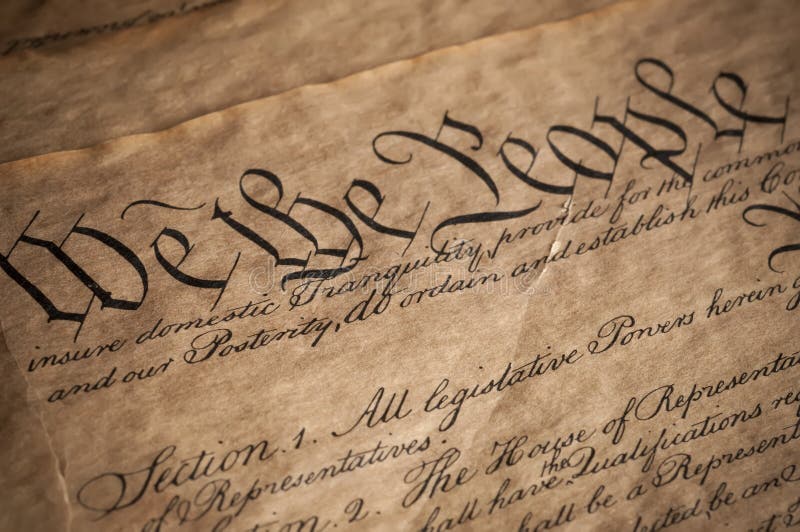 We the People
insure domestic Tranquility, provide for the common
and our Posterity, do ordain and establish this Co
Section. 1. All legislative Powers herein g
of Representatives.
on. 2. The House of Representa
hall have the Qualifications re
hall be a Represent
cted, be an